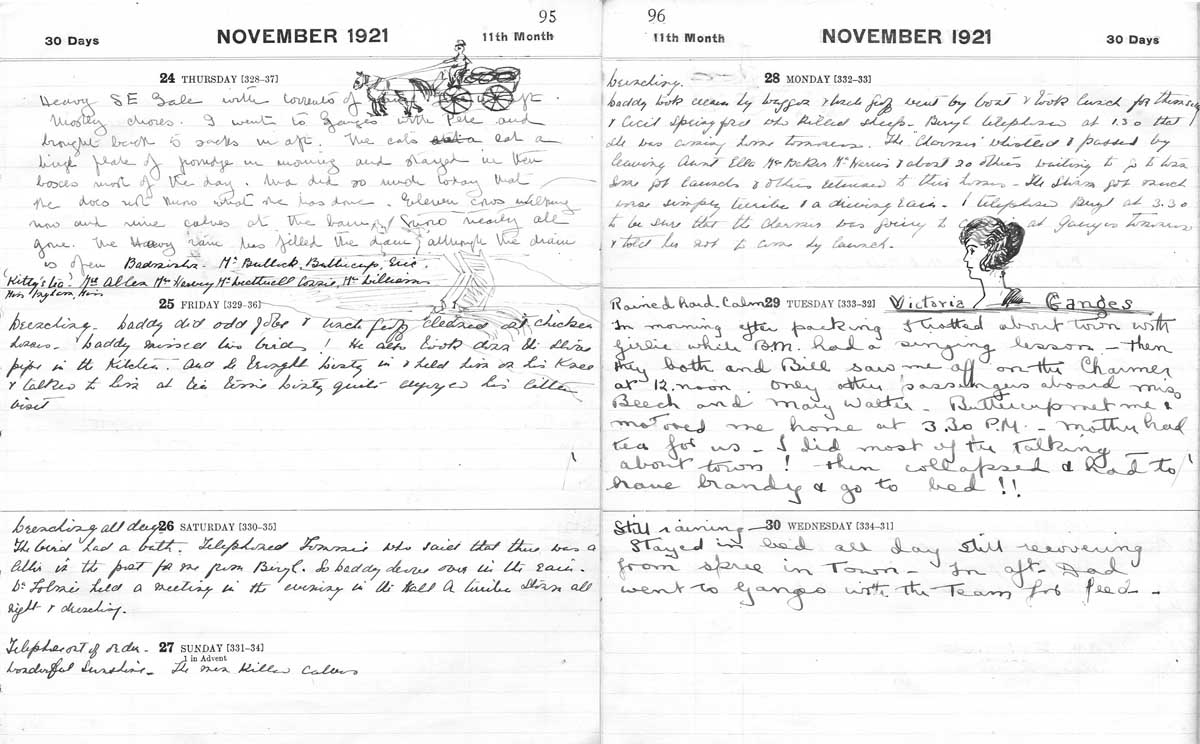 95
30 Days NOVEMBER 1921 11th Month
24 THURSDAY [328–37]
Heavy SE Gale with torrents of aft.
Mostly chores. I went to Ganges with Pete and
brought back 5 sacks in aft. The cats eat a
large plate of porridge in morning and stayed in their
boxes most of the day. did so much today that
he does not know what he has done. Eleven cows milking
now and nine calves at the barn, Snow nearly all
gone. The Heavy rain has filled the dam, although the drain
is open Badminton. Mr Bullock, Buttercup, Eric,
"Kitty's tea" Mrs Allen Mr Harvey Mr Cossie, Mr Williams
25 FRIDAY [329–36]
Drenching. Daddy did odd jobs & cleaned out chicken
house. Daddy missed his birds! He also took down the stove
pipe in the Kitchen. And he brought birdy in & held him on his knee
& talked to him at tea time birdy quite enjoyed his little
visit
Drenching all day 26 SATURDAY [330–35]
The bird had a bath. Telephoned Tommie who said that there was a
letter in the post for me from Beryl. So Daddy drove over in the rain.
held a meeting in the evening in the Hall A terrible storm all
night & drenching.
Telephone out of order. 27 SUNDAY [331–34]
1 in Advent
Wonderful Sunshine. The men killed calves
96
11th Month NOVEMBER 1921 30 Days
28 MONDAY [332–33]
Drenching.
Daddy took cream by buggy & went by boat & took lunch for
& Cecil Springford who killed sheep. Beryl telephoned at 1.30 that
she was coming home tomorrow. The 'Charmer' whistled & passed by
leaving Aunt Ella Mr Baker Mr Harris & about 20 others waiting to go to
Some got launch & others returned to their homes – The storm got much
worse simply terrible & a driving rain. I telephoned Beryl at 3.30
to be sure that the Charmer was going to at Ganges tomorrow
& told her not to come by launch.
Rained hard. Calm 29 TUESDAY [333–32] Victoria Ganges
In morning after packing I trotted about town with
Girlie while B.M. had a singing lesson – then
they both and Bill saw me off on the Charmer
at 12. noon only other passengers aboard miss
Beech and Mary Walter. Buttercup met me &
motored me home at 3.30 P.M. – Mother had
tea for us – I did most of the talking
about town! then collapsed & had to
have brandy & go to bed!!
Still raining – 30 WEDNESDAY [334–31]
Stayed in bed all day still recovering
from spree in Town – In aft. Dad
went to Ganges with the Team for feed –